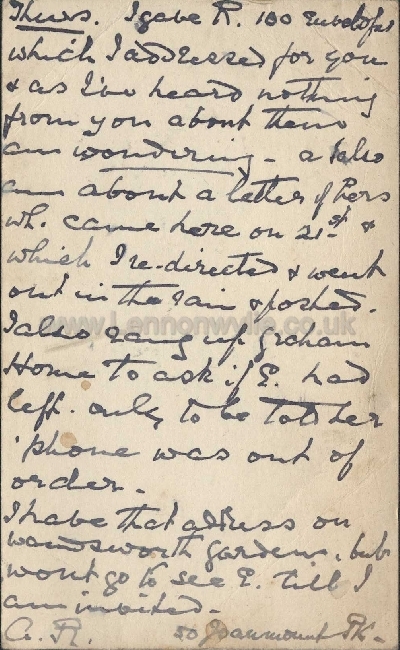 Thurs. I gave R. 100 envelopes
which I addressed for you
& as I've heard nothing
from you about them
am wondering - also
am about a letter of hers
wh. came here on 21st &
which I re-directed & went
out in the rain & posted.
I also rang up Graham
Home to ask if E. had
left. only to be told her
'phone was out of
order -
I have that address on
Wandsworth gardens, but
wont go to see E. till I
am invited -
50
www.Lennonwylie.co.uk